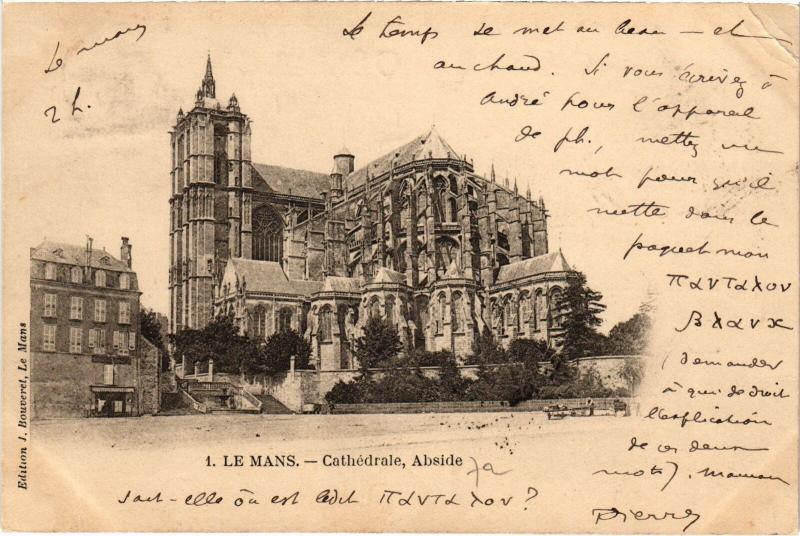 Le mans
2 h.
Le temps se met au beau — et
au chaud. Si vous écrivez à
André pour l'appareil
de ph., mettez un
mot pour qu'il
mette dans le
paquet mon
πανταλον
βλανχ
(demander
à qui de droit
l'explication
de ces deux
mots). Maman
sait-elle où est ledit πανταλον?
Pierre
1. LE MANS. — Cathédrale, Abside
Edition J. Bouveret, Le Mans